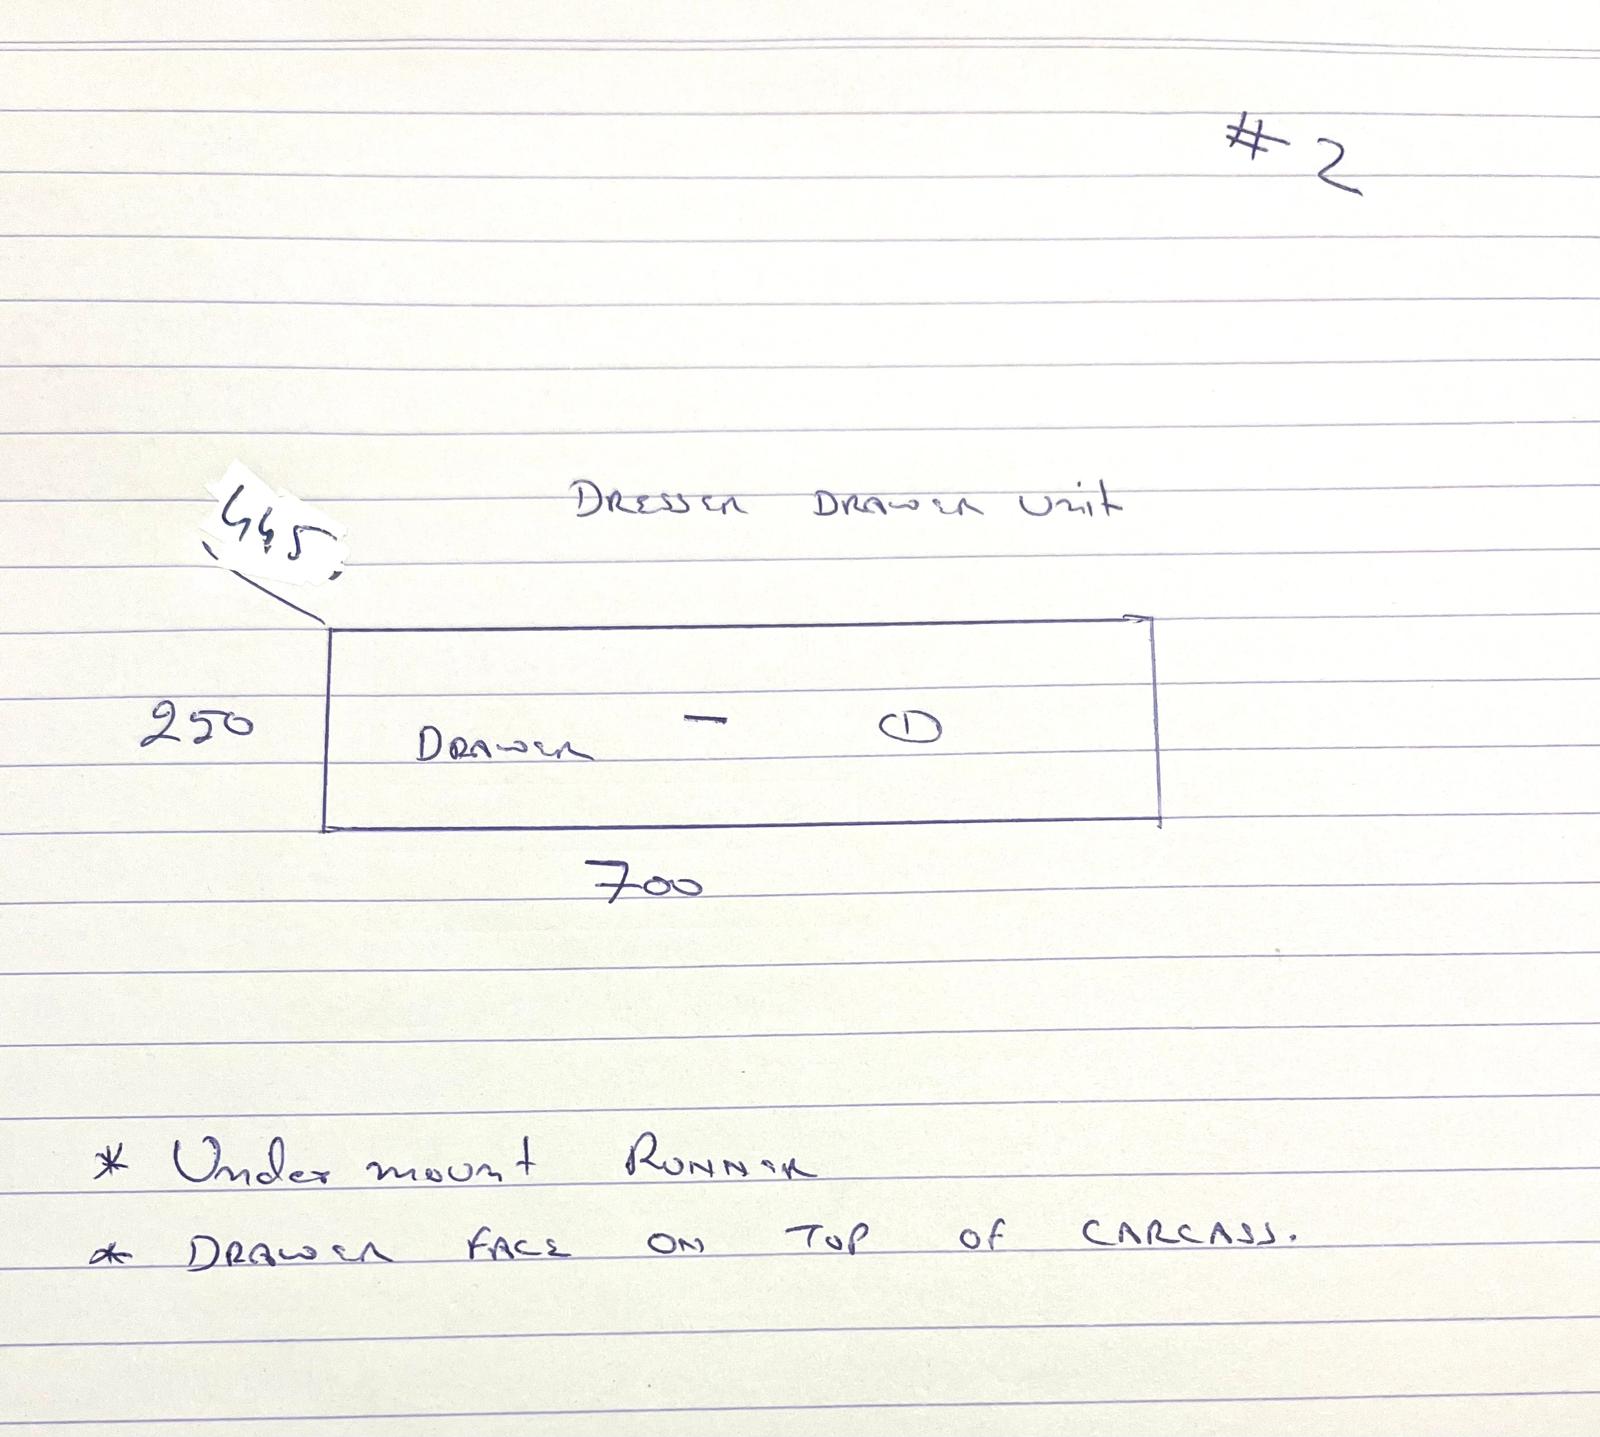 # 2
DRESSER DRAWER Unit
445
250
DRAWER - ①
700
* Undermount RUNNER
* DRAWER FACE ON TOP OF CARCASS.